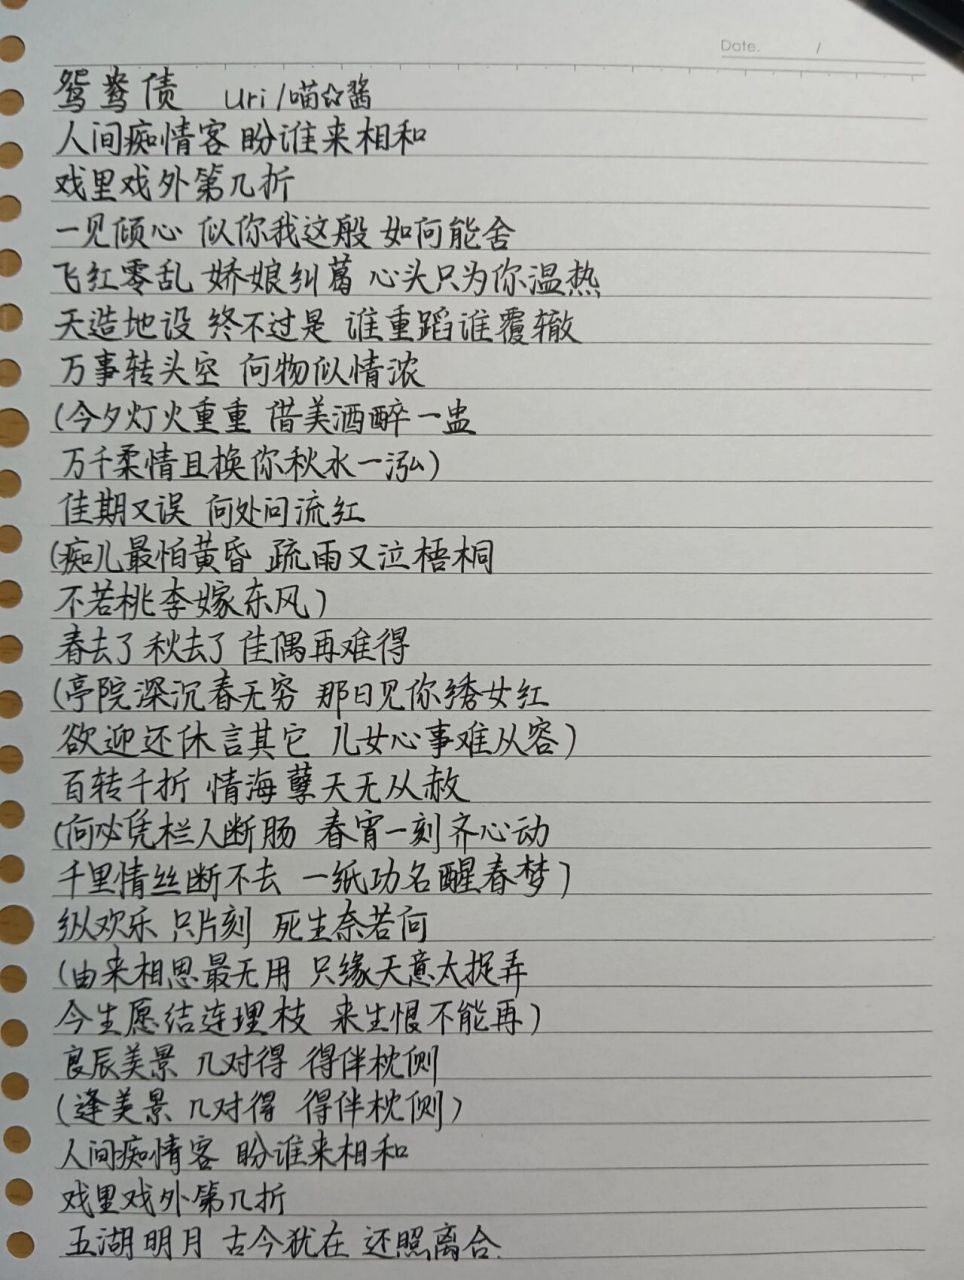 Date. /
鸳鸯债 uri/喵☆酱
人间痴情客 盼谁来相和
戏里戏外第几折
一见倾心 似你我这般 如何能舍
飞红零乱 娇娘纠葛 心头只为你温热
天造地设 终不过是 谁重蹈谁覆辙
万事转头空 何物似情浓
(今夕灯火重重 借美酒醉一盅
万千柔情且换你秋水一泓)
佳期又误 何处问流红
(痴儿最怕黄昏 疏雨又泣梧桐
不若桃李嫁东风)
春去了 秋去了 佳偶再难得
(亭院深沉春无穷 那日见你绣女红
欲迎还休言其它 儿女心事难从容)
百转千折 情海孽天无从赦
(何必凭栏人断肠 春宵一刻齐心动
千里情丝断不去 一纸功名醒春梦)
纵欢乐 只片刻 死生奈若何
(由来相思最无用 只缘天意太捉弄
今生愿结连理枝 来生恨不能再)
良辰美景 几对得 得伴枕侧
(逢美景 几对得 得伴枕侧)
人间痴情客 盼谁来相和
戏里戏外第几折
五湖明月 古今犹在 还照离合